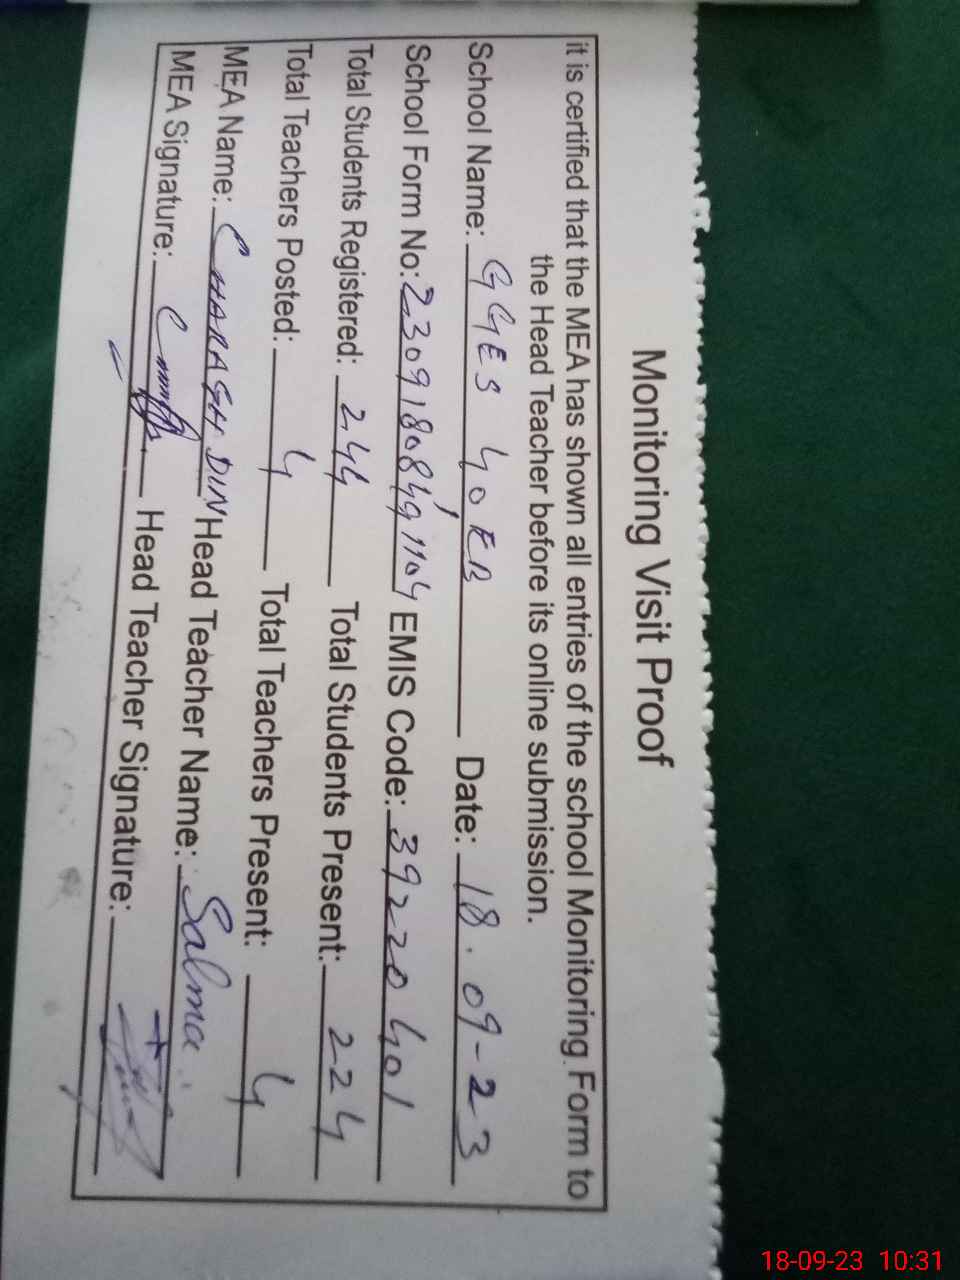 Monitoring Visit Proof
it is certified that the MEA has shown all entries of the school Monitoring Form to
the Head Teacher before its online submission.
School Name: GGES 40 EB Date: 18.09-23
School Form No: 23091808491104 EMIS Code: 39220401
Total Students Registered: 244 Total Students Present: 224
Total Teachers Posted: 4 Total Teachers Present: 4
MEA Name: CHARAGH DIN Head Teacher Name: Salma
MEA Signature: Head Teacher Signature:
18-09-23 10:31